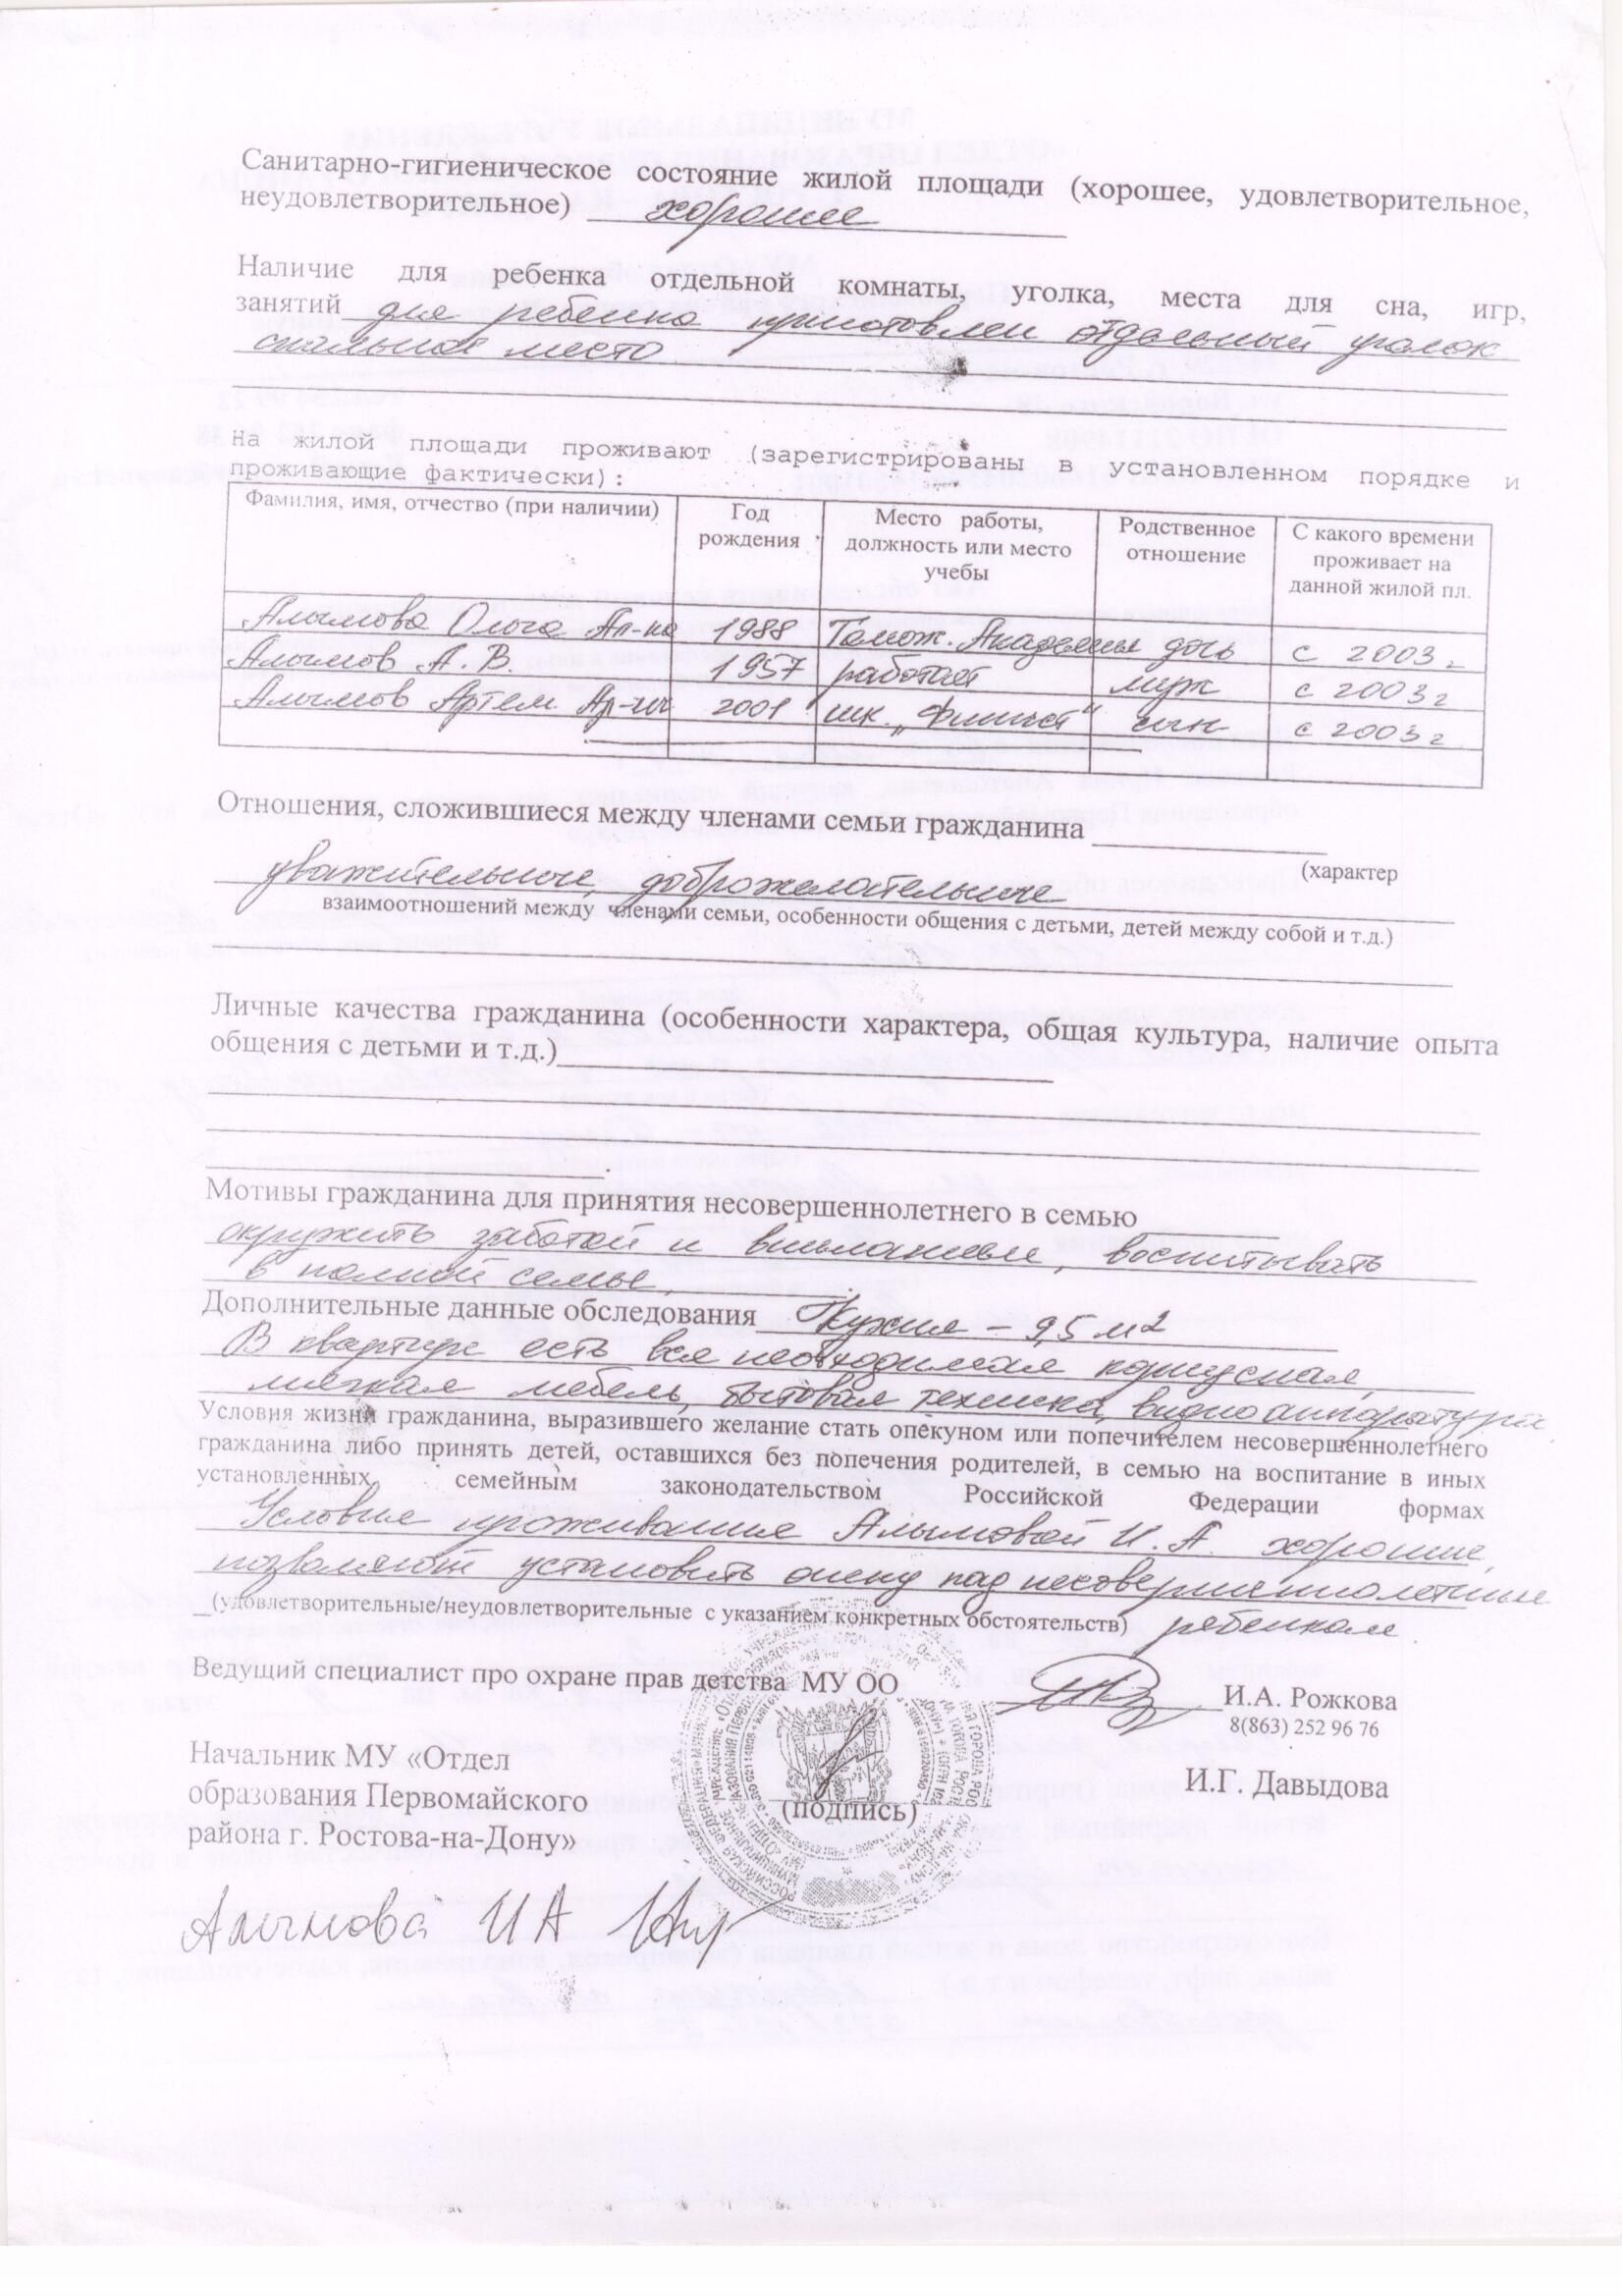 Санитарно-гигиеническое состояние жилой площади (хорошее, удовлетворительное,
неудовлетворительное) хорошее
Наличие для ребенка отдельной комнаты, уголка, места для сна, игр,
занятий для ребенка приготовлен отдельный уголок
спальное место
На жилой площади проживают (зарегистрированы в установленном порядке и
проживающие фактически):
Фамилия, имя, отчество (при наличии) Год рождения Место работы, должность или место учебы Родственное отношение С какого времени проживает на данной жилой пл.
Алымова Ольга Ал-на 1988 Тамож. Академия дочь с 2003 г
Алымов А. В. 1957 работает муж с 2003 г
Алымов Артем Ар-ич 2001 шк. „Финист“ сын с 2003 г
Отношения, сложившиеся между членами семьи гражданина
(характер
уважительные, доброжелательные
взаимоотношений между членами семьи, особенности общения с детьми, детей между собой и т.д.)
Личные качества гражданина (особенности характера, общая культура, наличие опыта
общения с детьми и т.д.)
Мотивы гражданина для принятия несовершеннолетнего в семью
окружить заботой и вниманием, воспитывать
в полной семье.
Дополнительные данные обследования Кухня – 9,5 м2
В квартире есть вся необходимая корпусная,
мягкая мебель, бытовая техника, видиоаппаратура.
Условия жизни гражданина, выразившего желание стать опекуном или попечителем несовершеннолетнего
гражданина либо принять детей, оставшихся без попечения родителей, в семью на воспитание в иных
установленных семейным законодательством Российской Федерации формах
Условия проживания Алымовой И. А. хорошие,
позволяют установить опеку над несовершеннолетним
(удовлетворительные/неудовлетворительные с указанием конкретных обстоятельств) ребенком.
Ведущий специалист про охране прав детства МУ ОО И.А. Рожкова
8(863) 252 96 76
Начальник МУ «Отдел
образования Первомайского
района г. Ростова-на-Дону»
(подпись)
И.Г. Давыдова
Алымова ИА